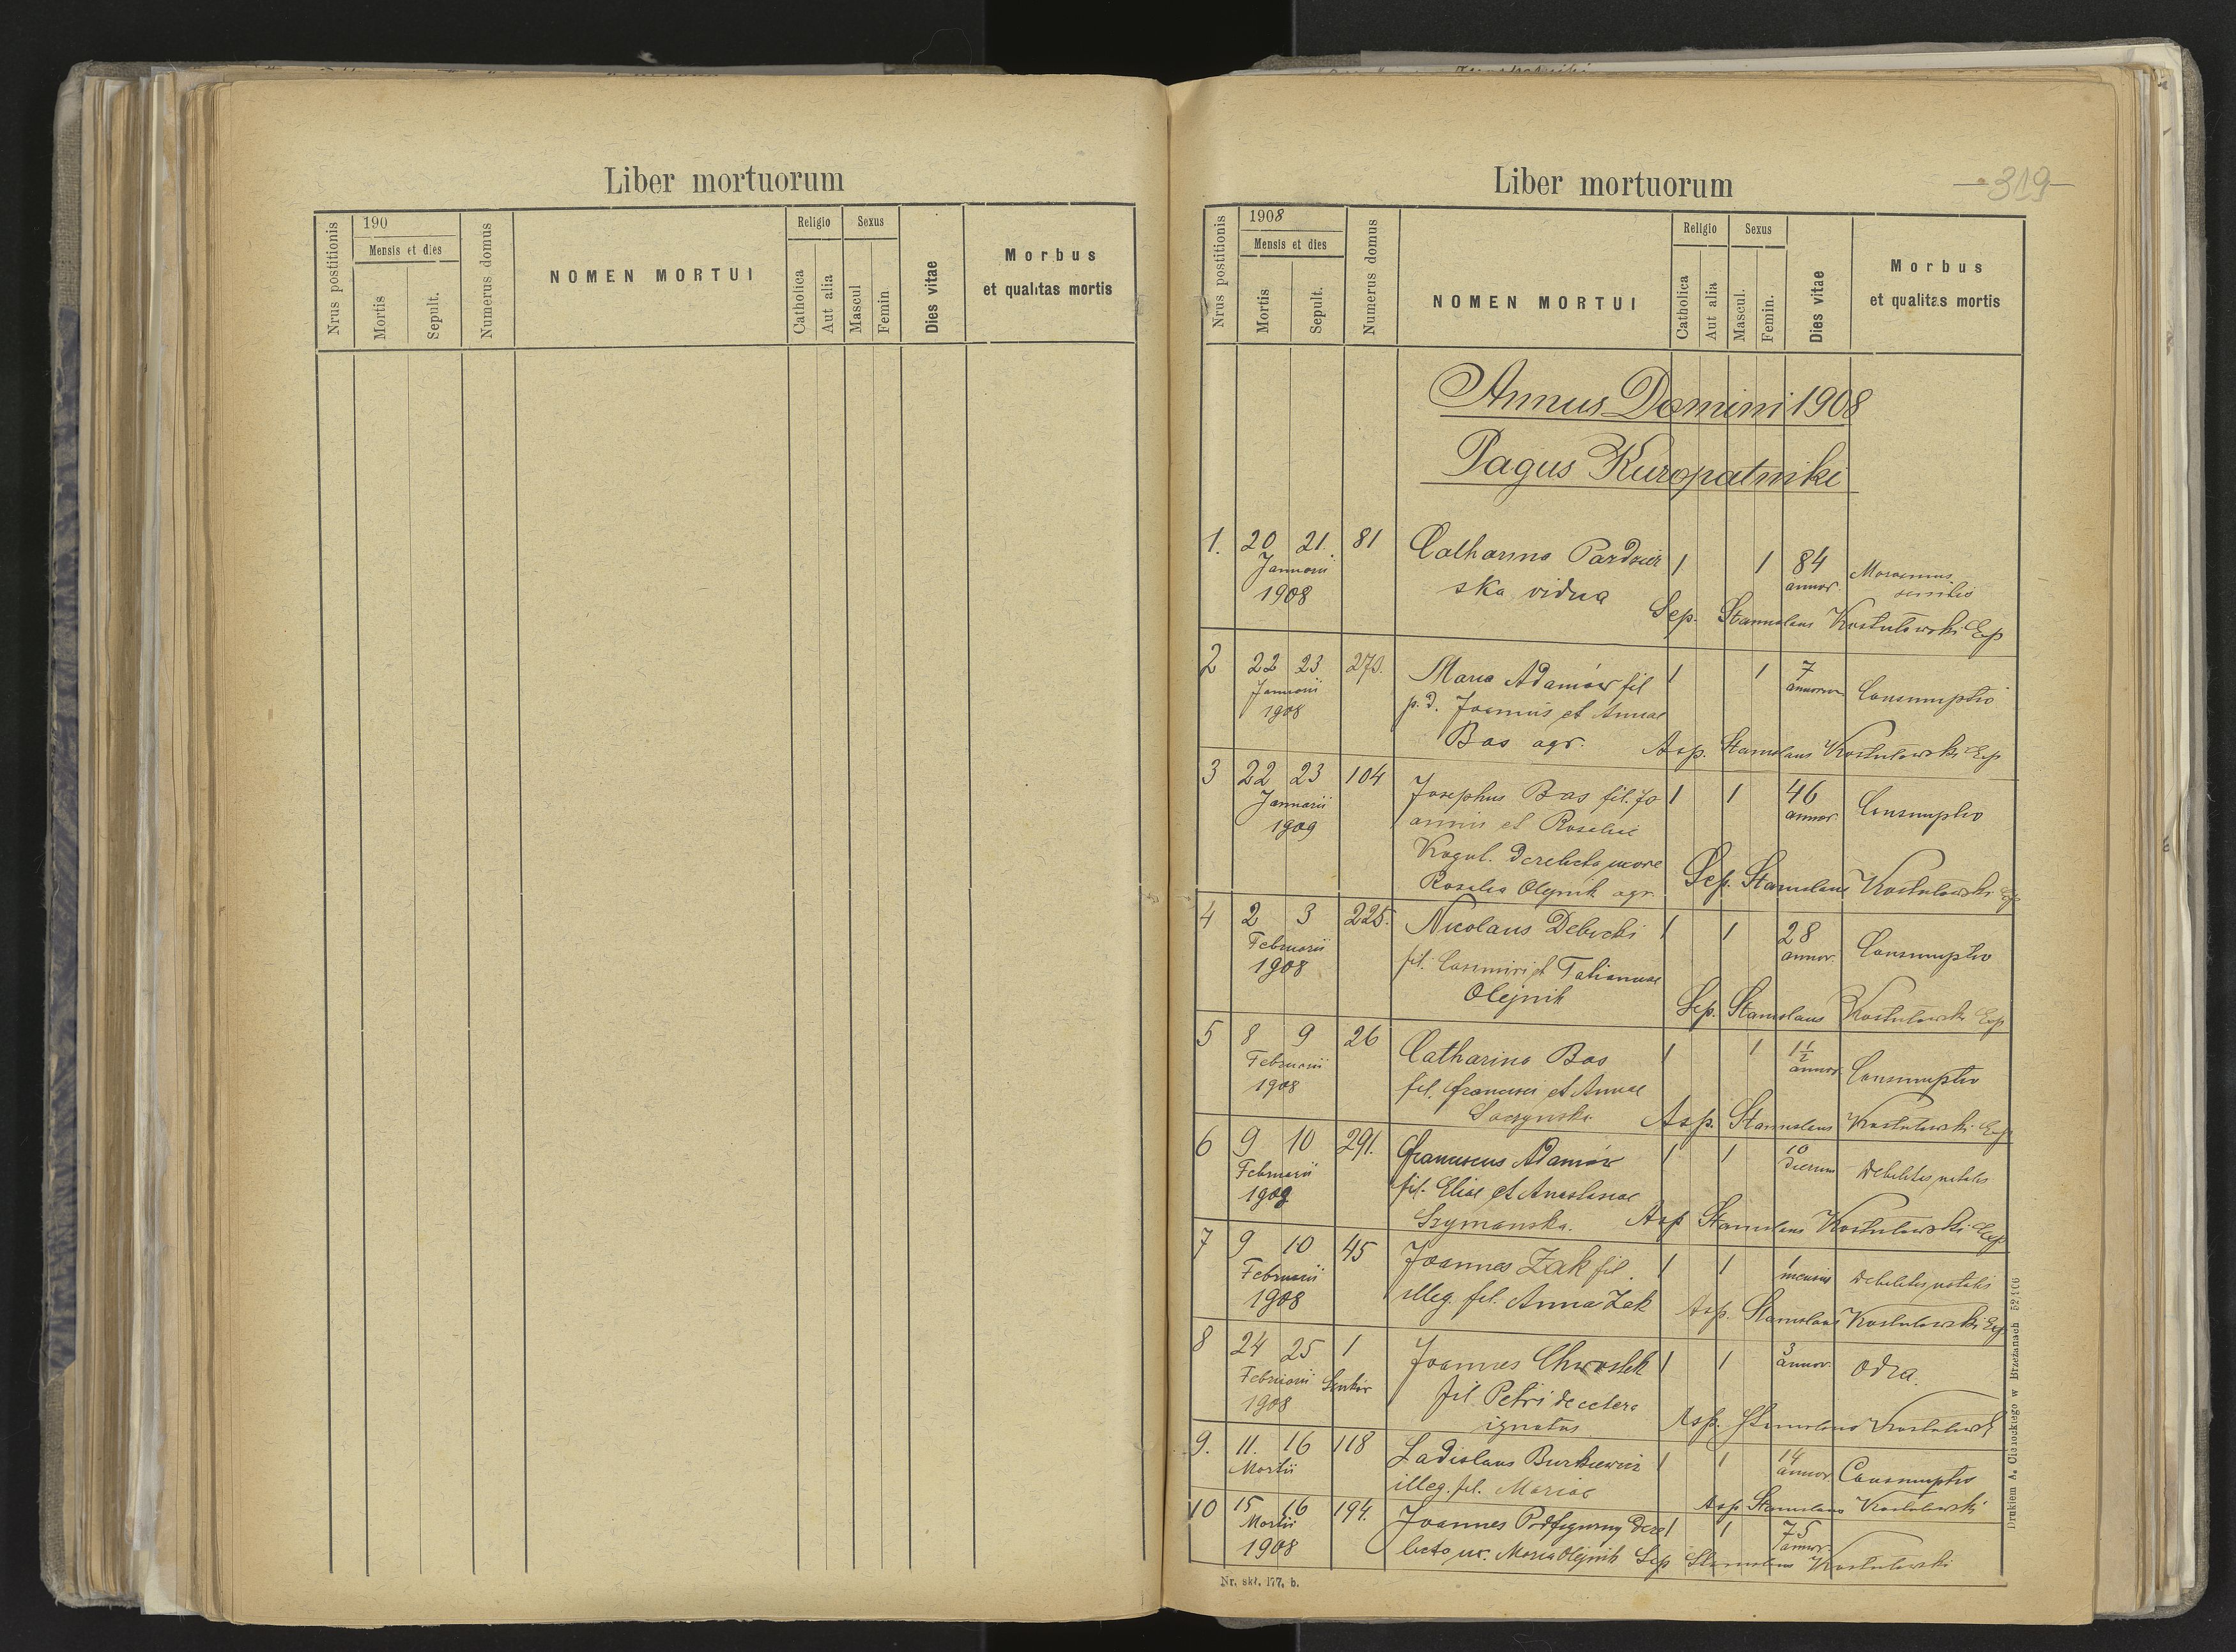 Liber mortuorum
Nrus postitionis
190
Mensis et dies
Mortis
Sepult.
Numerus domus
NOMEN MORTUI
Religio
Catholica
Aut alia
Sexus
Mascul
Femin.
Dies vitae
Morbus
et qualitas mortis
Liber mortuorum
319
Nrus postitionis
1908
Mensis et dies
Mortis
Sepult.
Numerus domus
NOMEN MORTUI
Religio
Catholica
Aut alia
Sexus
Mascul.
Femin.
Dies vitae
Morbus
et qualitas mortis
Annus Domini 1908
Pagus Kuropatniki
1. 20 21. 81 Catharina 1 1 84
Januarii annor. senilis
1908 ska vidua
Sep. Stanislaus Kostulowski Exp
2 22 23 273. Maria Adamów fil 1 1 7
Januarii annorum Consumptio
1908 p. d. Joannis et Annae
Bas agr. Asp. Stanislaus Kostulowski Exp
3 22 23 104 Josephus Bas fil. Jo 1 1 46
Januarii annor. Consumptio
1909 annis et Rosaliae
derelicta uxore
Rosalia Olejnik agr. Sep. Stanislaus Kostulowski Exp
4 2 3 225. Nicolaus Debicki 1 1 28
Februarii annor. Consumptio
1908 fil. Casimiri et Tatiannae
Olejnik Sep. Stanislaus Kostulowski Exp
5 8 9 26 Catharina Bas 1 1 1 1/2
Februarii annor. Consumptio
1908 fil. Francisci et Annae
Asp. Stanislaus Kostulowski Exp
6 9 10 291. Franciscus Adamów 1 1 10
Februarii dierum Debilitas natalis
1908 fil. Eliae et Anastasiae
Szymanska. Asp Stanislaus Kostulowski Exp
7 9 10 45 Joannes Żak fil. 1 1 1
Februarii mensis Debilitas natalis
1908 illeg. fil. Anna Żak Asp. Stanislaus Kostulowski Exp
8 24 25 1 Joannes Chwostek 1 1 3
Februarii annor. Odra.
1908 fil Petri de cetero
ignotus Asp. Stanislaus Kostulowski
9. 11. 16 118 Ladislaus 1 1 14
Martii annor. Consumptio
illeg. fil. Mariae
Asp Stanislaus Kostulowski
10 15 16 194. Joannes Podfigurny dere 1 1 75
Martii annor.
1908 licto ux. Maria Olejnik Sep Stanislaus Kostulowski
Nr. skł. 177. b.